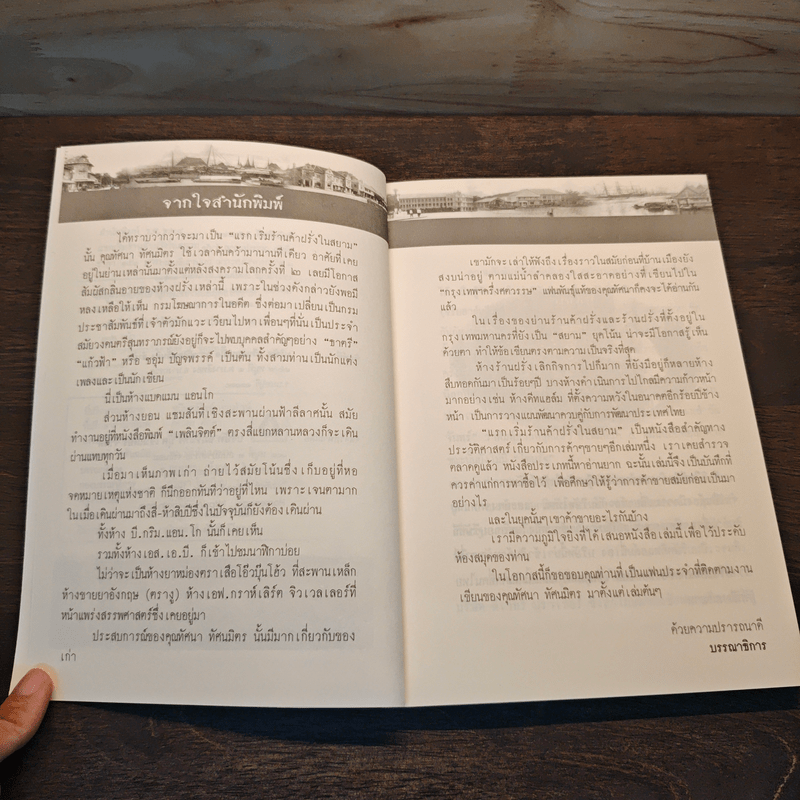 จากใจสำนักพิมพ์
ได้ทราบว่ากว่าจะมาเป็น "แรกเริ่มร้านค้าฝรั่งในสยาม"
นั้น คุณทัศนา ทัศนมิตร ใช้เวลาค้นคว้ามานานทีเดียว อาศัยที่เคย
อยู่ในย่านเหล่านั้นมาตั้งแต่หลังสงครามโลกครั้งที่ ๒ เลยมีโอกาส
สัมผัสกลิ่นอายของห้างฝรั่งเหล่านี้ เพราะในช่วงดังกล่าวยังพอมี
หลงเหลือให้เห็น กรมโฆษณาการในอดีต ซึ่งต่อมาเปลี่ยนเป็นกรม
ประชาสัมพันธ์ที่เจ้าตัวมักแวะเวียนไปหาเพื่อนๆที่นั่นเป็นประจำ
สมัยวงดนตรีสุนทราภรณ์ยังอยู่ก็จะไปพบบุคคลสำคัญๆอย่าง "ธาตรี"
"แก้วฟ้า" หรือ ชอุ่ม ปัญจพรรค์ เป็นต้น ทั้งสามท่านเป็นนักแต่ง
เพลงและเป็นนักเขียน
นี่เป็นห้างแบดแมน แอนโก
ส่วนห้างยอน แซมสันที่เชิงสะพานผ่านฟ้าลีลาศนั้น สมัย
ทำงานอยู่ที่หนังสือพิมพ์ "เพลินจิตต์" ตรงสี่แยกหลานหลวงก็จะเดิน
ผ่านแทบทุกวัน
เมื่อมาเห็นภาพเก่า ถ่ายไว้สมัยโน้นซึ่งเก็บอยู่ที่หอ
จดหมายเหตุแห่งชาติ ก็นึกออกทันทีว่าอยู่ที่ไหน เพราะเจนตามาก
ในเมื่อเดินผ่านมาถึงสี่-ห้าสิบปีซึ่งในปัจจุบันก็ยังต้องเดินผ่าน
ทั้งห้าง บี.กริม.แอน.โก นั้นก็เคยเห็น
รวมทั้งห้างเอส.เอ.บี. ก็เข้าไปชมนาฬิกาบ่อย
ไม่ว่าจะเป็นห้างยาหม่องตราเสือโอ๊วบุ๊นโฮ้ว ที่สะพานเหล็ก
ห้างขายยาอังกฤษ (ตรางู) ห้างเอฟ.กราห์เลิร์ต จิวเวลเลอร์ที่
หน้าแพร่งสรรพศาสตร์ซึ่งเคยอยู่มา
ประสบการณ์ของคุณทัศนา ทัศนมิตร นั้นมีมากเกี่ยวกับของ
เก่า
เขามักจะเล่าให้ฟังถึงเรื่องราวในสมัยก่อนที่บ้านเมืองยัง
สงบน่าอยู่ ตามแม่น้ำลำคลองใสสะอาดอย่างที่เขียนไปใน
"กรุงเทพฯครึ่งศตวรรษ" แฟนพันธุ์แท้ของคุณทัศนาก็คงจะได้อ่านกัน
แล้ว
ในเรื่องของย่านร้านค้าฝรั่งและร้านฝรั่งที่ตั้งอยู่ใน
กรุงเทพมหานครที่ยังเป็น "สยาม" ยุคโน้น น่าจะมีโอกาสรู้เห็น
ด้วยตา ทำให้ข้อเขียนตรงตามความเป็นจริงที่สุด
ห้างร้านฝรั่ง เลิกกิจการไปก็มาก ที่ยังมีอยู่ก็หลายห้าง
สืบทอดกันมาเป็นร้อยๆปี บางห้างดำเนินการไปไกลมีความก้าวหน้า
มากอย่างเช่น ห้างดีทแฮล์ม ที่ตั้งความหวังในอนาคตอีกร้อยปีข้าง
หน้า เป็นการวางแผนพัฒนาควบคู่กับการพัฒนาประเทศไทย
"แรกเริ่มร้านค้าฝรั่งในสยาม" เป็นหนังสือสำคัญทาง
ประวัติศาสตร์เกี่ยวกับการค้าๆขายๆอีกเล่มหนึ่ง เราเคยสำรวจ
ตลาดดูแล้ว หนังสือประเภทนี้หาอ่านยาก ฉะนั้นเล่มนี้จึงเป็นบันทึกที่
ควรค่าแก่การหาซื้อไว้ เพื่อศึกษาให้รู้ว่าการค้าขายสมัยก่อนเป็นมา
อย่างไร
และในยุคนั้นๆเขาค้าขายอะไรกันบ้าง
เรามีความภูมิใจยิ่งที่ได้เสนอหนังสือเล่มนี้เพื่อไว้ประดับ
ห้องสมุดของท่าน
ในโอกาสนี้ก็ขอขอบคุณท่านที่เป็นแฟนประจำที่ติดตามงาน
เขียนของคุณทัศนา ทัศนมิตร มาตั้งแต่เล่มต้นๆ
ด้วยความปรารถนาดี
บรรณาธิการ